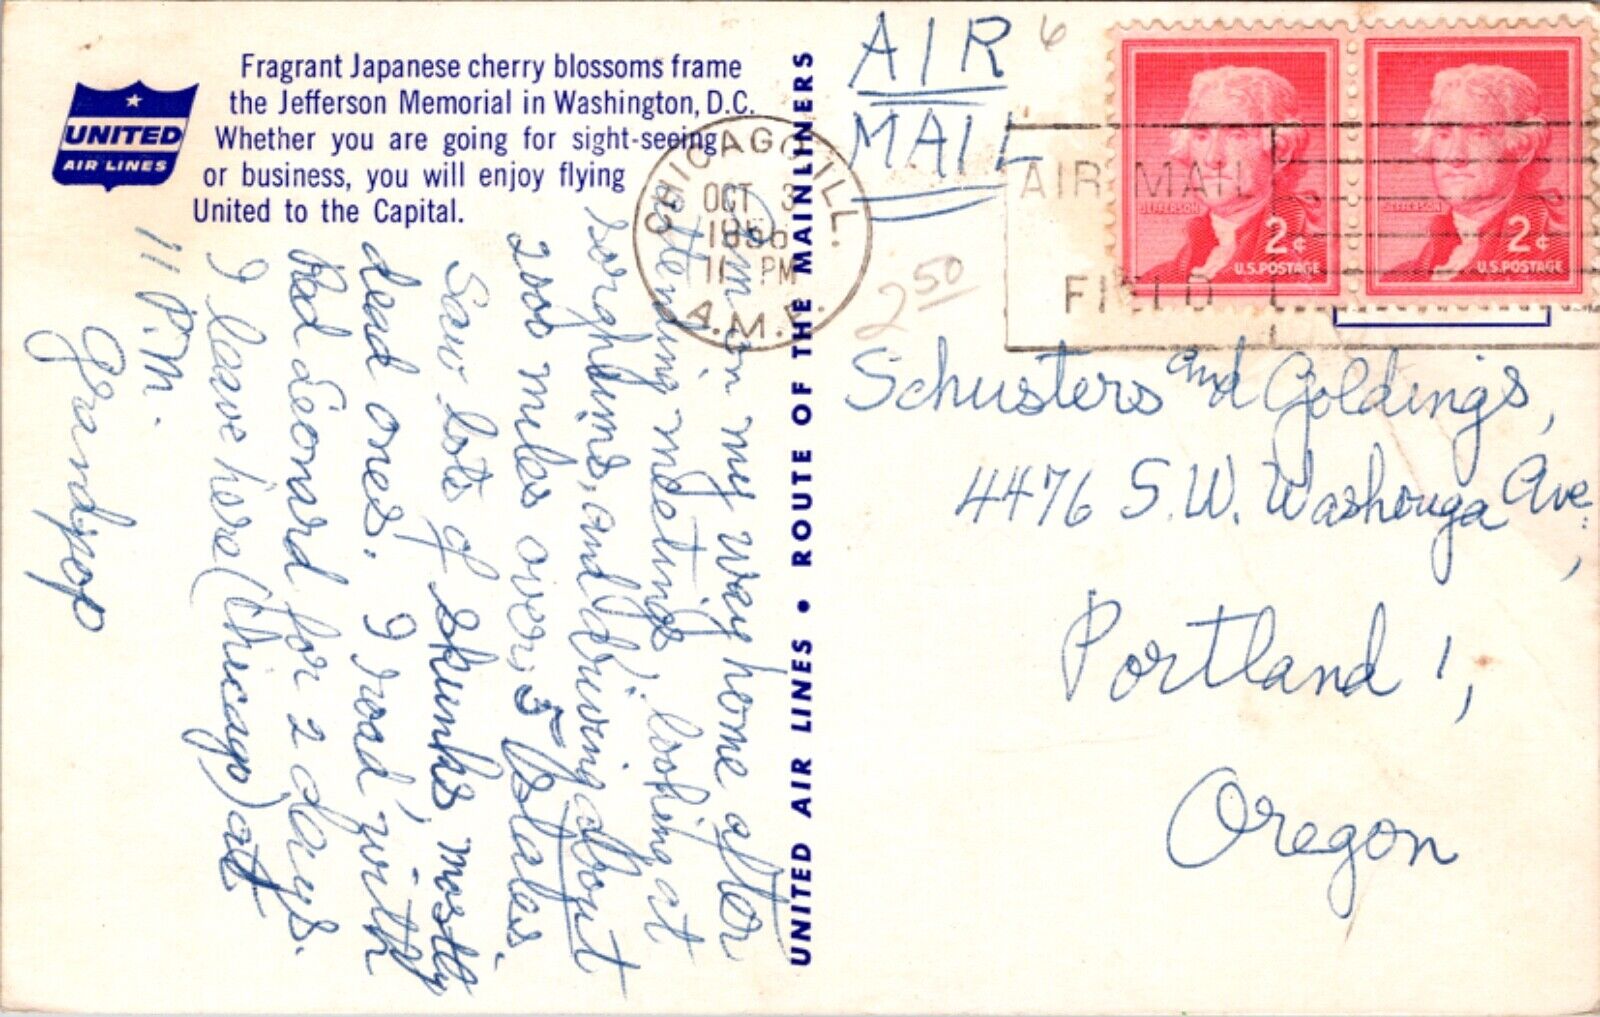 Fragrant Japanese cherry blossoms frame
the Jefferson Memorial in Washington, D.C.
Whether you are going for sight-seeing
or business, you will enjoy flying
United to the Capital.
UNITED
AIR LINES
Am on my way home after
attending meetings, looking at
sorghums, and driving about
2000 miles over 5 States.
Saw lots of skunks mostly
dead ones. I road with
Red Leonard for 2 days.
I leave here (Chicago) at
11 P.M.
Grandpop
UNITED AIR LINES • ROUTE OF THE MAINLINERS
AIR
MAIL
6
2 50
CHICAGO, ILL.
OCT 3
1956
11 PM
A.M.F.
AIR MAIL
FIELD
JEFFERSON
2¢
U.S. POSTAGE
JEFFERSON
2¢
U.S. POSTAGE
Schusters and Goldings,
4476 S.W. Washouga Ave.,
Portland 1,
Oregon